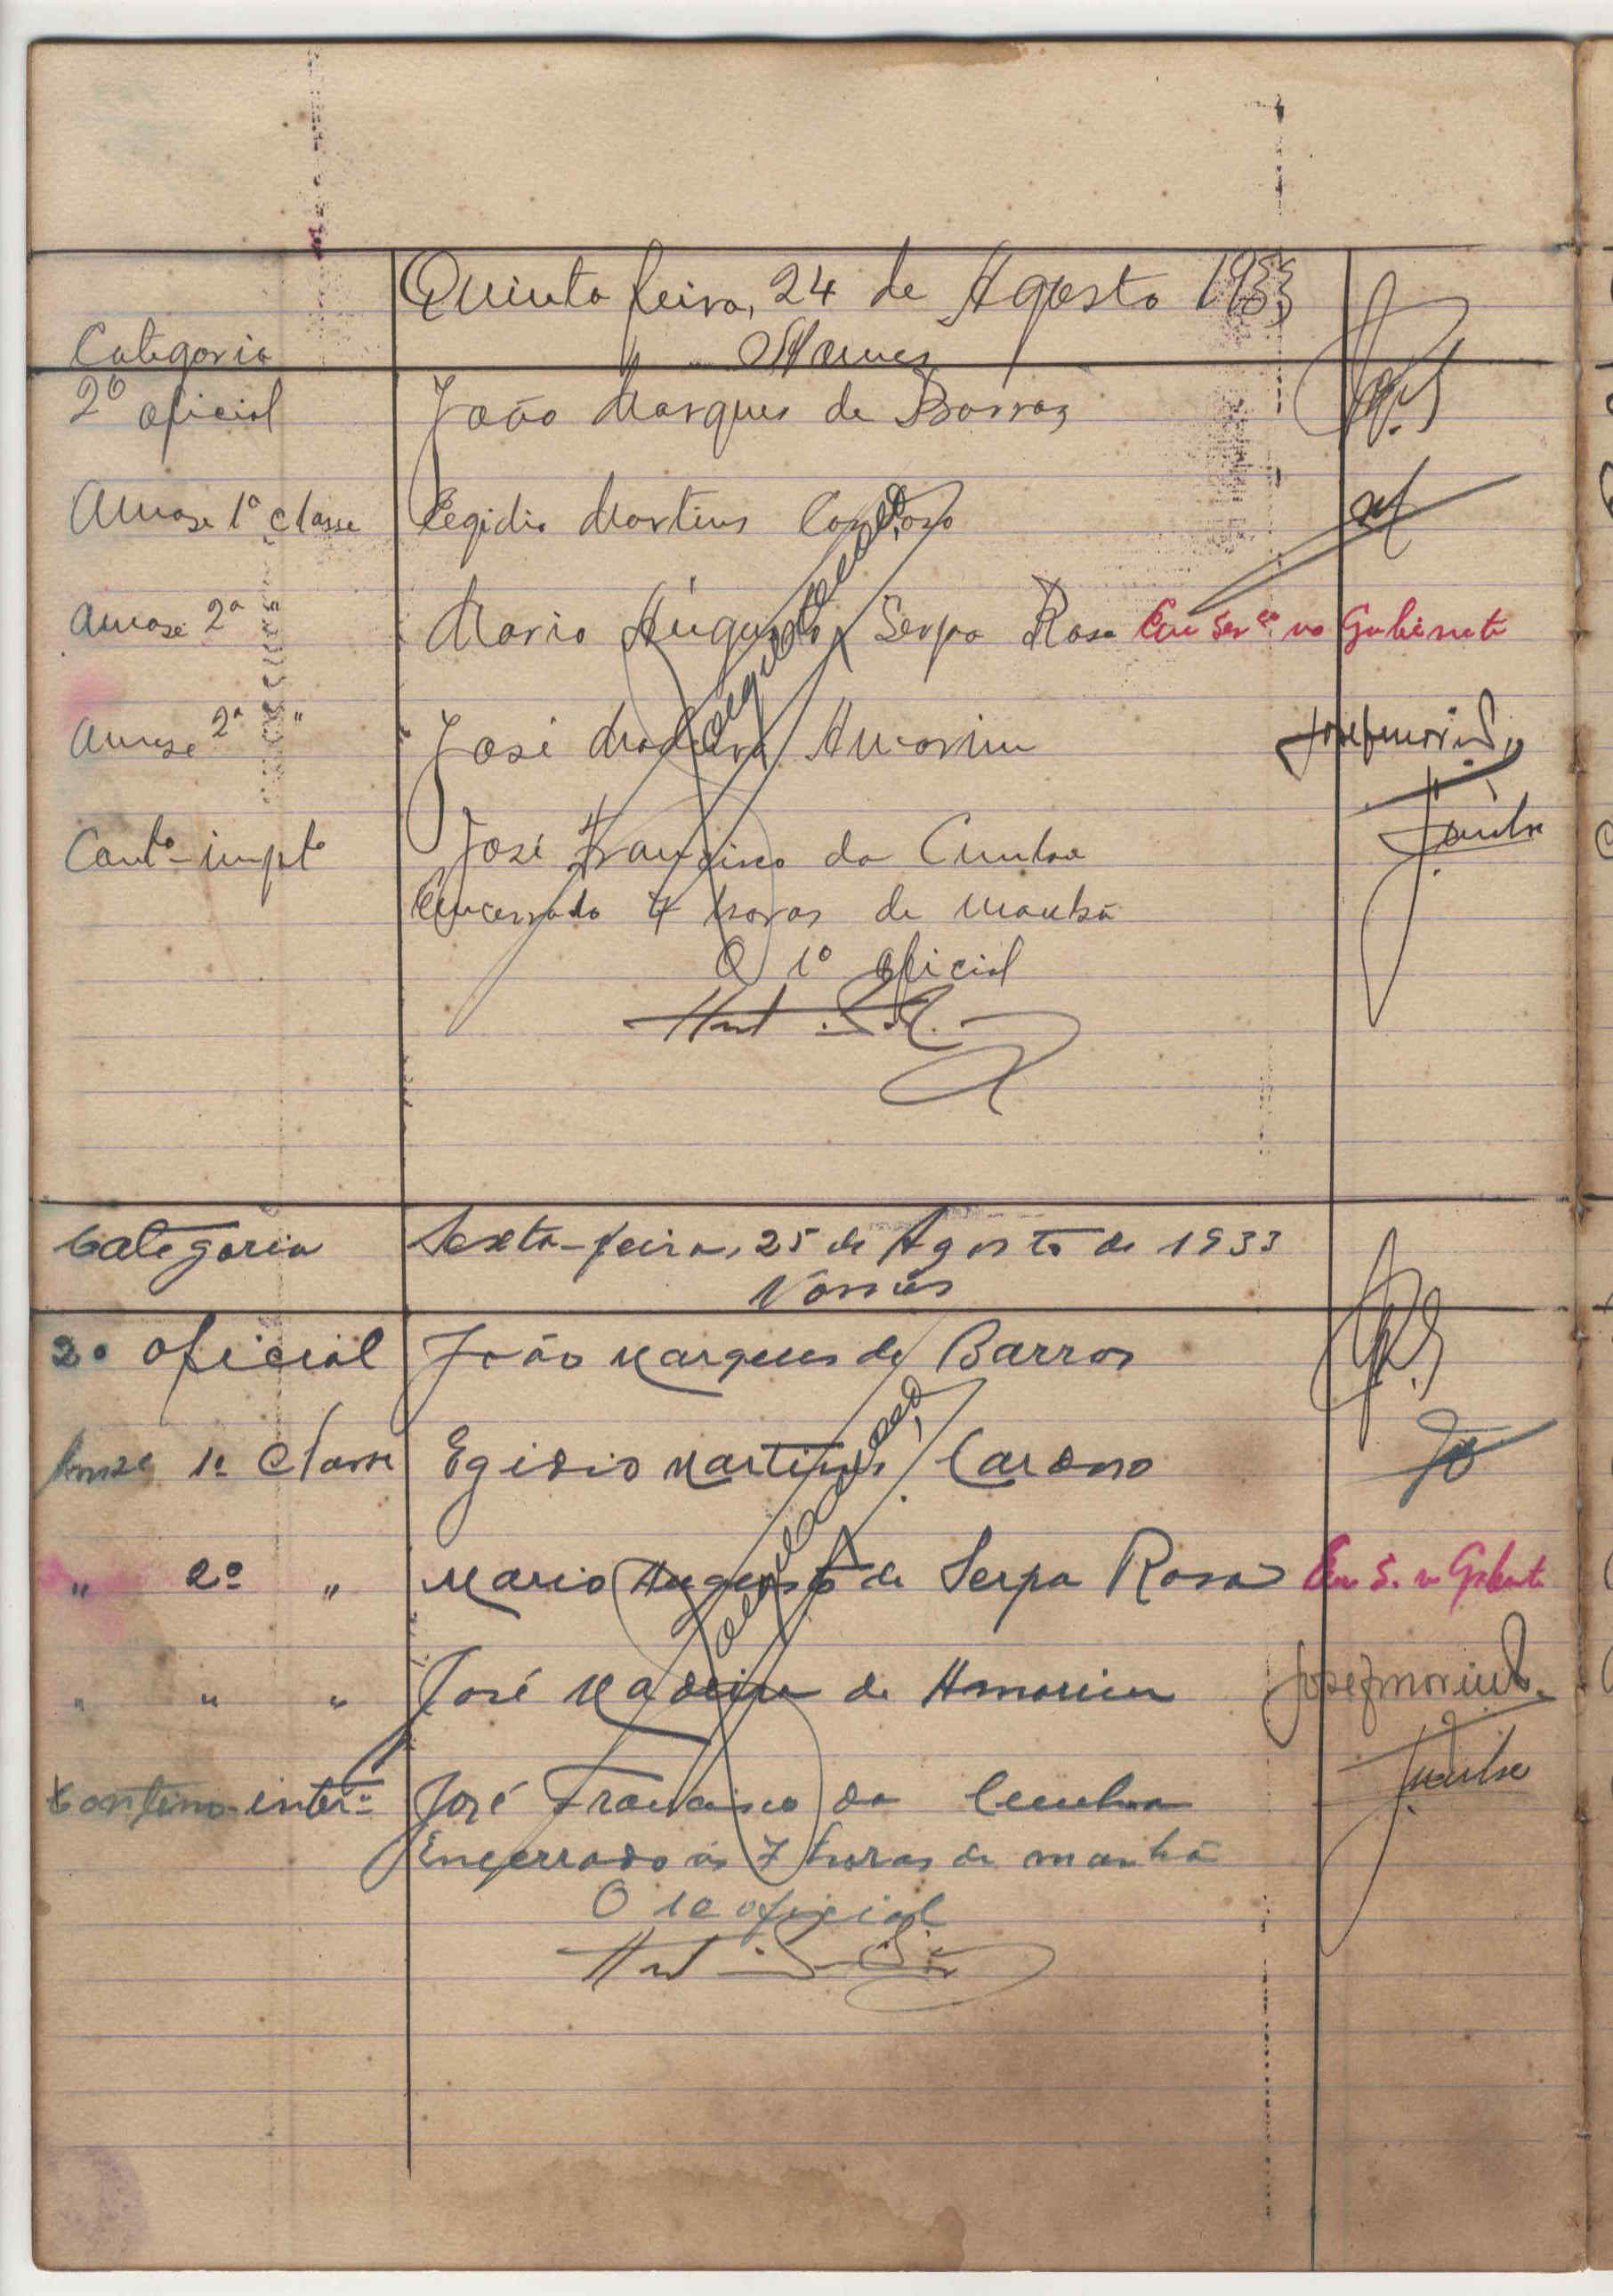 Quinta feira, 24 de Agosto 1933
Categoria Nomes
2º oficial João Marques de Barros
Amaze 1ª classe Egidio Martins Cardoso
Amaze 2ª Mario Augusto Serpa Rosa Em Serço no Gabinete
Amaze 2ª " José Madeira Amorim
Conto impto José Francisco da Cunha Cunha
Encerrado 7 horas de manhã
O 1º oficial
Categoria Sexta-feira, 25 de Agosto de 1933
Nomes
2º oficial João Marques de Barros
Amze 1ª Classe Egidio Martins Cardoso
" 2ª " Mario Augusto de Serpa Rosa Em S. no Gabinete
" " " José Madeira de Amorim
Contino-interº José Francisco da Cunha Cunha
Encerrado ás 7 horas da manhã
O 1º oficial